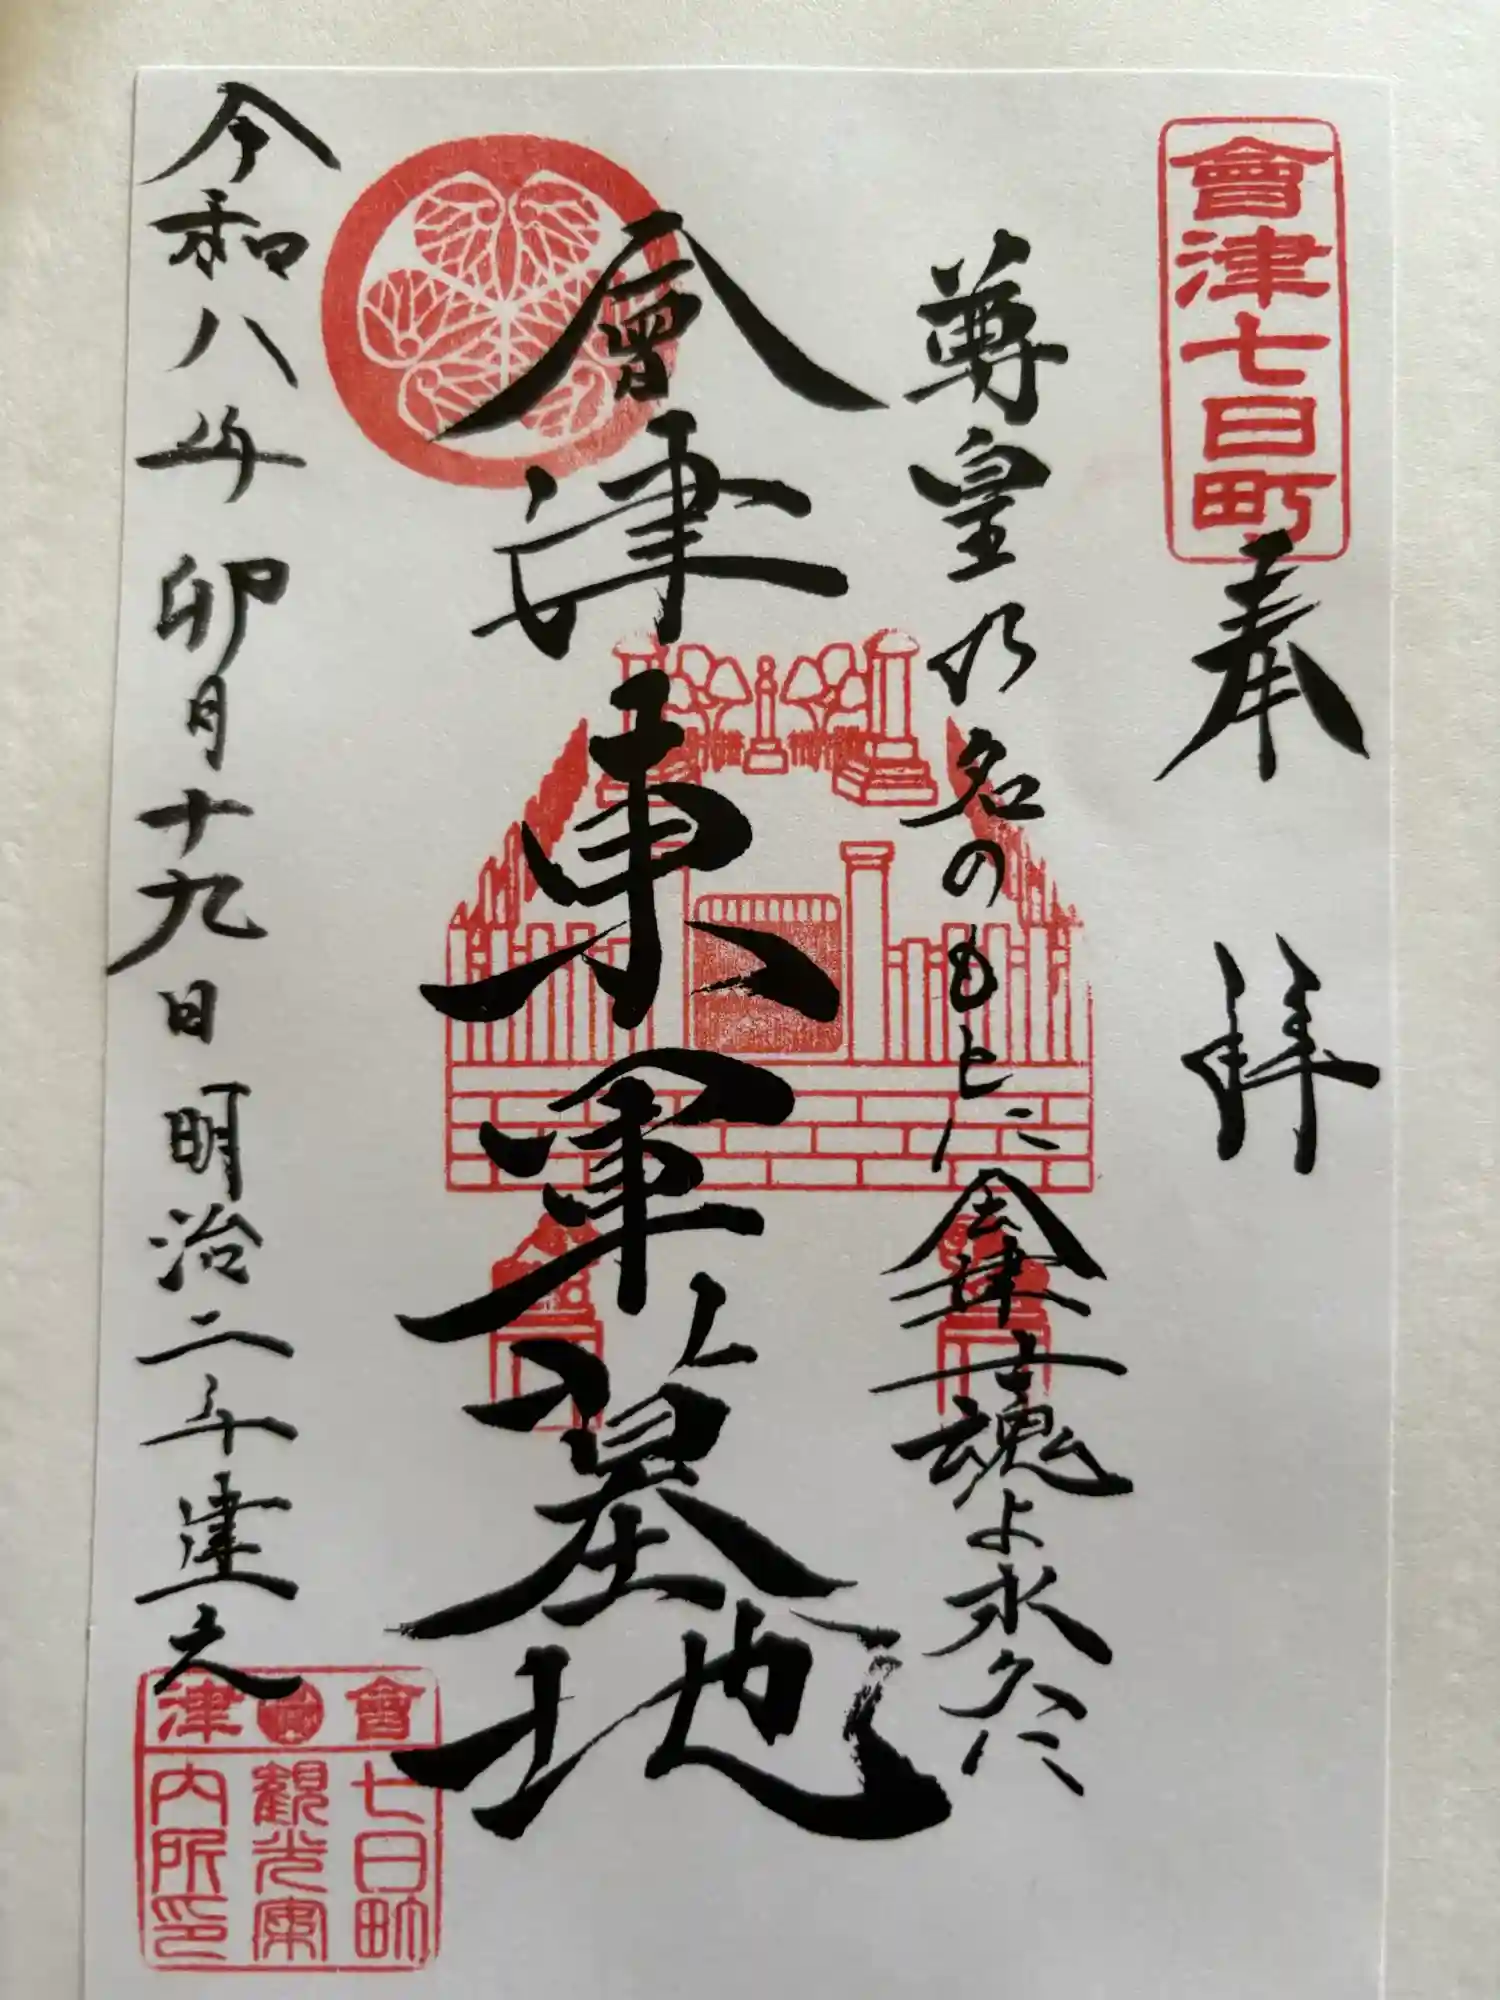 會津七日町
奉拝
尊皇の名のもとに會津士魂よ永久に
會津東軍墓地
令和八年卯月十九日明治二年建之
會津
七日町
観光案
内所印